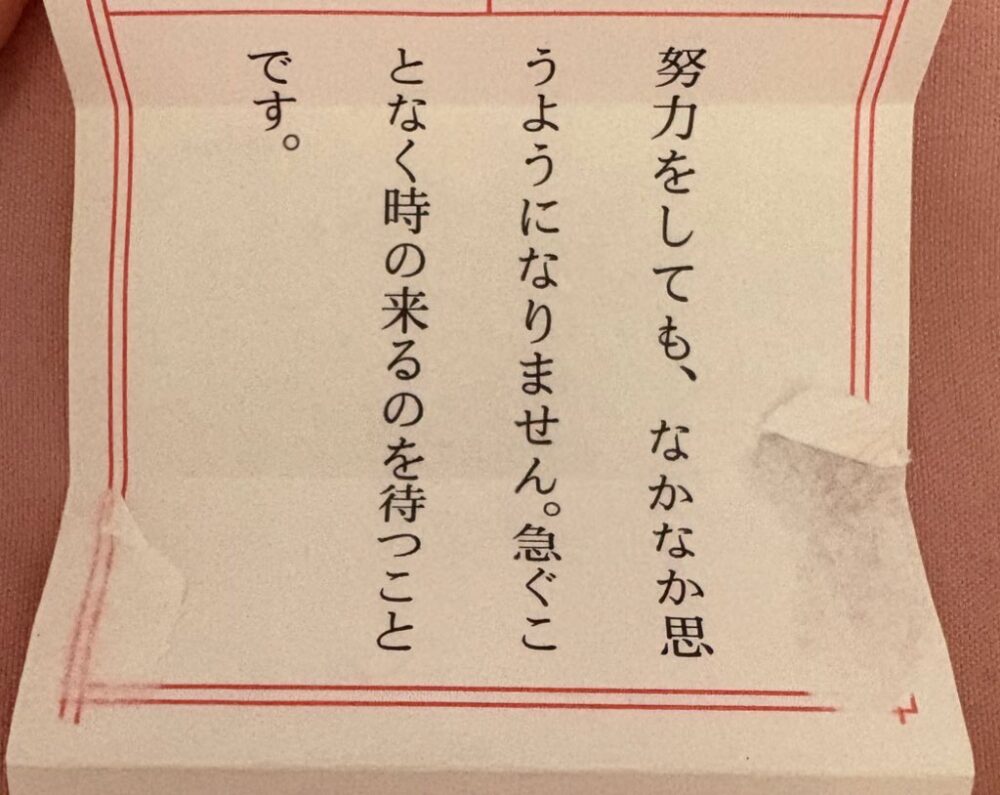 努力をしても、なかなか思
うようになりません。急ぐこ
となく時の来るのを待つこと
です。